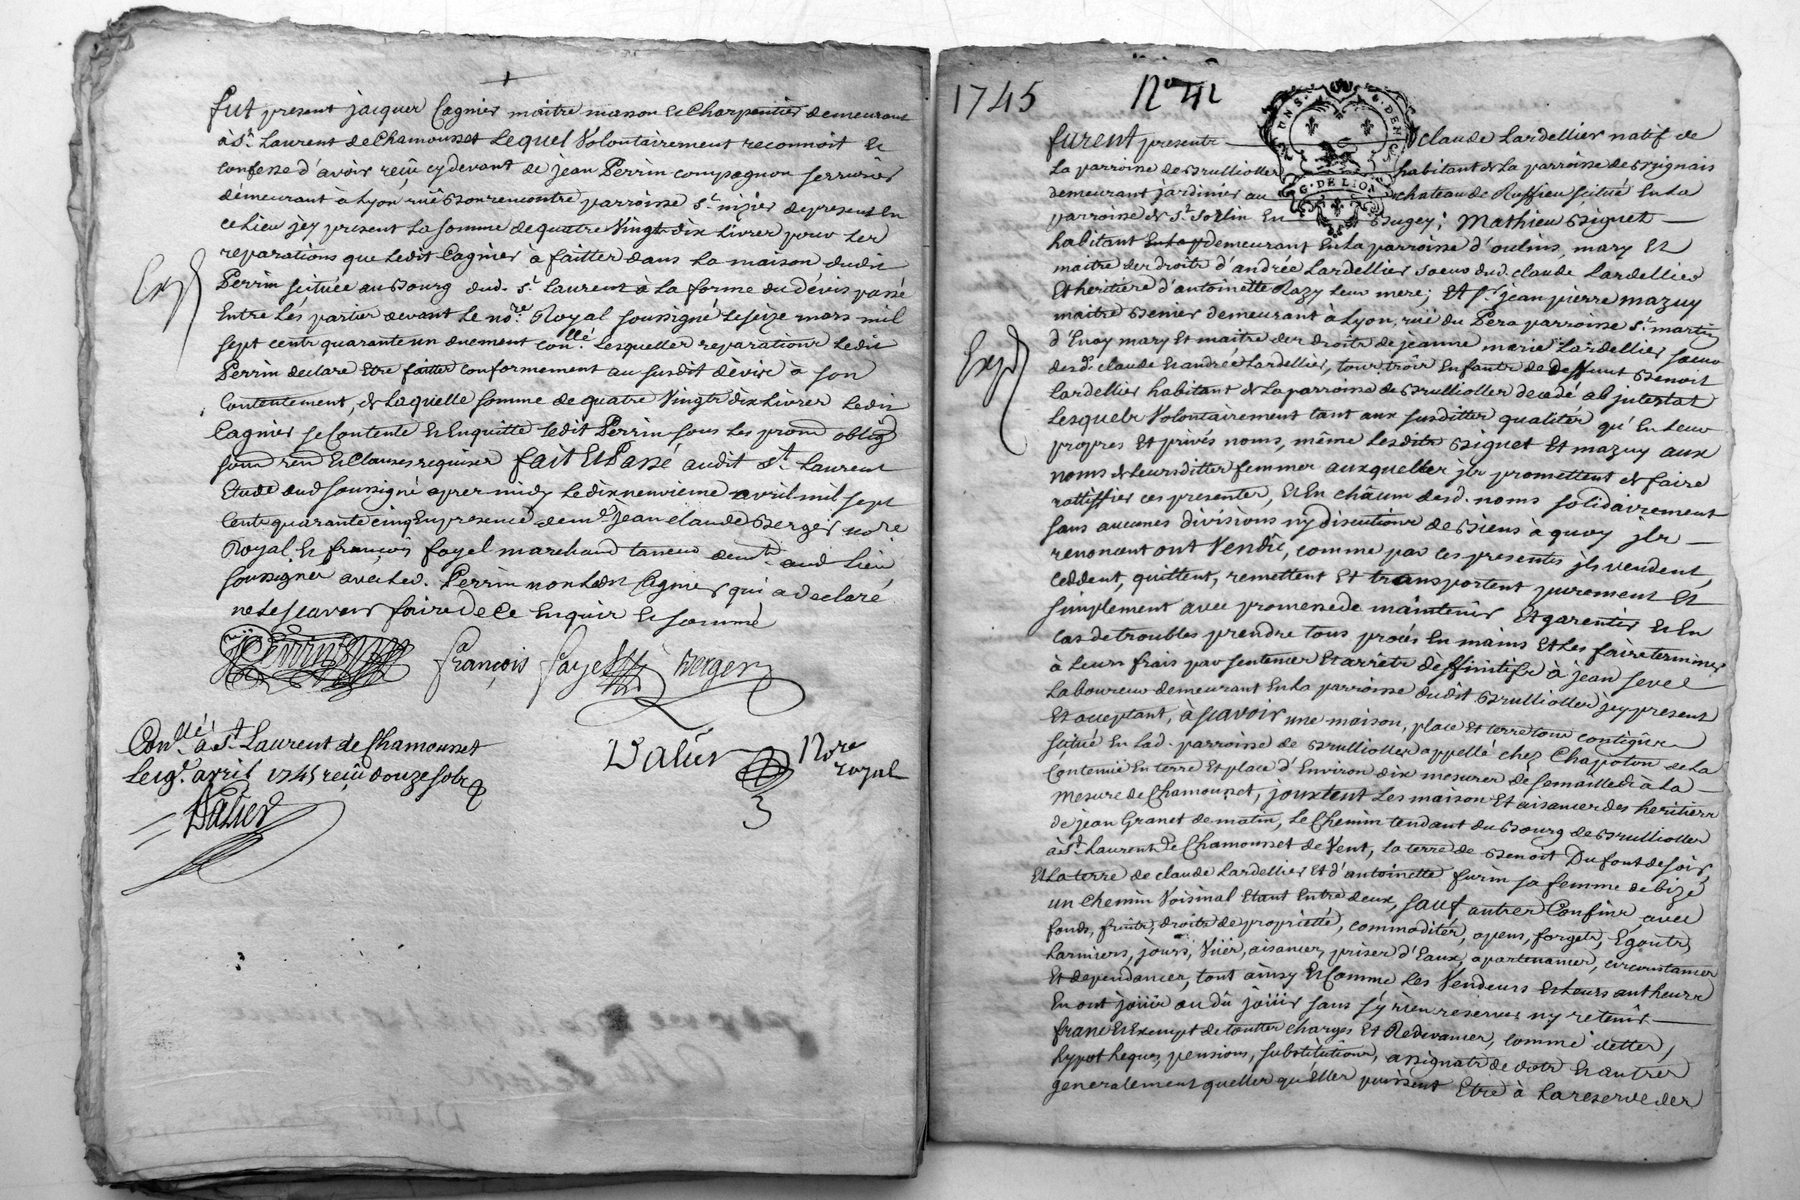 fut present jacques Cagnier maitre masson et Charpentier demeurant
à St. Laurent de Chamousset Lequel Volontairement reconnoit et
confesse d'avoir reçû cydevant de jean Perrin compagnon serrurier
démeurant à Lyon ruë Bonrencontre parroisse St. nizier depresent en
ce lieu jcy present La somme de quatre Vingt dix Livres pour Les
reparations que Ledit Cagnier à faittes dans La maison dudit
Perrin scituée au Bourg dud. St. Laurent à La forme du dévis passé
Entre Les parties devant Le nore. Royal soussigné Le seize mars mil
sept cents quarante un duement conllé. Lesquelles reparations Ledit
Perrin declare Etre faittes conformement au susdit dévis à son
Contentement, de Laquelle somme de quatre Vingts dix Livres Ledit
Cagnier se Contente et Enquitte Ledit Perrin sous Les prom oblig
soum ren et Clauses requises fait Et Passé audit St. Laurent
Etude dud soussigné apres midy Le dix neuvieme avril mil sept
Cents quarante cinq En presence de me. jean claude Berger nore
Royal et françois fayel marchand taneur demt. aud Lieu
soussignés avec Led. Perrin non Led. Cagnier qui a declaré
ne Le sçavoir faire de ce Enquis et sommé
Perrin françois fayel Berger
Exp
Conllé à St. Laurent de Chamousset
Le 19e. avril 1745 reçû douze sols
Dalier
Dalier Nore
royal
1745 No 42
G. DE LION
furent presents Claude Lardellier natif de
La parroisse de Brulliolles habitant de La parroisse de Brignais
demeurant jardinier au chateau de Ruffieu scitué En La
parroisse de St. Sorlin En Bugey; Mathieu Briguet
habitant demeurant En La parroisse d'oulins, mary Et
maitre des droits d'andrée Lardellier soeur dud. claude Lardellier
Et heritiere d'antoinette Razy Leur mere; Et Sr. jean pierre mazuy
maitre demeurant à Lyon, ruë du Pera parroisse St. martin
d'Enay mary Et maitre des droits de jeanne marie Lardellier soeur
desd. claude et andrée Lardellier, tous trois Enfants de deffunt Benoit
Lardellier habitant de La parroisse de Brulliolles decedé ab jntestat
Lesquels Volontairement tant aux susdittes qualités qu'En Leur
propres Et privés noms, même Lesdits Briguet Et mazuy aux
noms de Leurs dittes femmes auxquelles jls promettent de faire
rattiffier ces presentes, et En châcun desd. noms solidairement
sans aucunes divisions ny discutions de Biens à quoy jls
renoncent ont Vendu, comme par ces presentes jls vendent,
ceddent, quittent, remettent Et transportent purement Et
simplement avec promesse de maintenir Et garentir et En
Cas de troubles prendre tous procés En mains Et Les faire terminer
à Leurs frais par sentences Et arrets déffinitifs à jean sevel
Laboureur demeurant En La parroisse dudit Brulliolles jcy present
Et acceptant, à sçavoir une maison, place Et terre tous contigüs
scitué En Lad. parroisse de Brulliolles appellé chez Chapoton de La
Contenuë En terre Et place d'Environ dix mesures de semailles à La
Mesure de Chamousset, jouxtent Les maison Et aisances des heritiers
de jean Granet de matin, Le Chemin tendant du Bourg de Brulliolles
à St. Laurent de Chamousset de Vent, La terre de Benoit Dufont de soir,
Et La terre de claude Lardellier Et d'antoinette furin sa femme de bize
un Chemin Voisinal Etant Entre deux, sauf autres Confins, avec
fonds, fruits, droits de proprietté, commodités, apens, forgets, Egouts,
Larmiers, jours, Vuës, aisances, prises d'Eaux, apartenances, circonstances
Et dependances, tout ainsy et Comme Les Vendeurs et Leurs autheurs
En ont joüi ou dû joüir sans s'y rien reserver ny retenir
franc et Exempt de touttes charges Et Redevances, comme dettes,
hypotheques, pensions, substitutions, assignats de dots et autres
generalement quelles qu'Elles puissent Etre à La reserve des
Exp